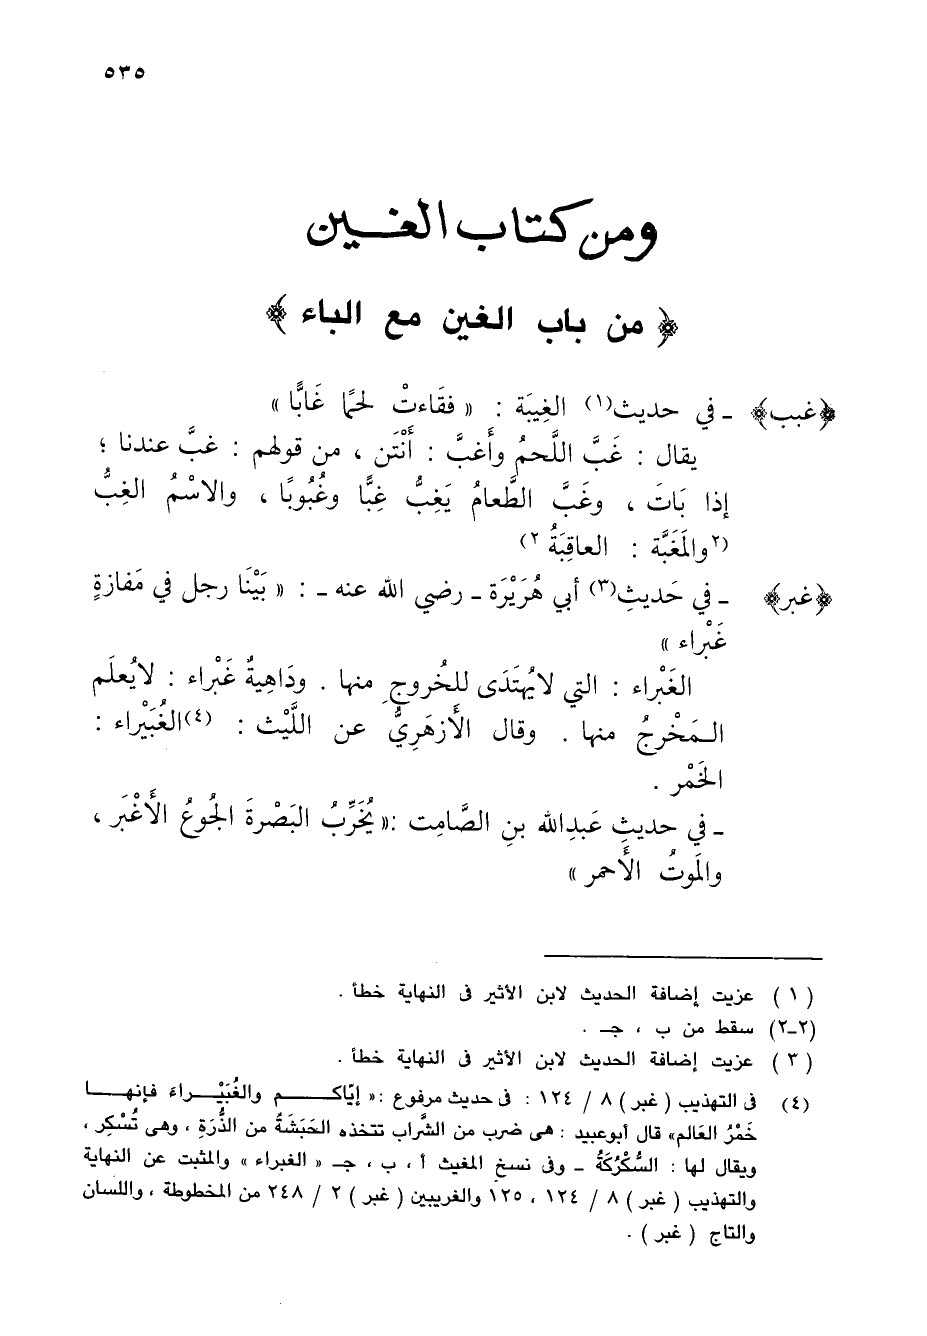 ٥٣٥
ومن كتاب الغـــين
﴿ من باب الغين مع الباء ﴾
﴿غبب﴾ ـ في حديث(١) الغِيبَة : « فقَاءتْ لحمًا غَابًّا »
يقال : غَبَّ اللَّحمُ وأَغبَّ : أَنْتَن ، من قولهم : غبَّ عندنا ؛
إذا بَاتَ ، وغَبَّ الطَّعامُ يَغِبُّ غِبًّا وغُبُوبًا ، والاسْمُ الغِبُّ
(٢والمَغَبَّة : العاقِبَةُ ٢)
﴿غبر﴾ ـ في حَديثِ(٣) أبي هُرَيْرَة ـ رضي الله عنه ـ : « بَيْنَا رجل في مَفازةٍ
غَبْراء »
الغَبْراء : التي لايُهتَدَى للخُروجِ منها . ودَاهِيةٌ غَبْراء : لايُعلَم
المَخْرجُ منها . وقال الأَزهَرِيُّ عن اللَّيْث : (٤)الغُبَيْراء :
الخَمْر .
ـ في حديثِ عَبدِالله بنِ الصَّامِت :« يُخَرِّبُ البَصْرةَ الجُوعُ الأَغْبَر ،
والمَوتُ الأَحمر »
( ١ ) عزيت إضافة الحديث لابن الأثير فى النهاية خطأ .
(٢ـ٢) سقط من ب ، جـ .
( ٣ ) عزيت إضافة الحديث لابن الأثير فى النهاية خطأ .
(٤) فى التهذيب ( غبر ) ٨ / ١٢٤ : فى حديث مرفوع :« إيّاكـــــم والغُبَيْـــراءَ فإنهـــا
خَمْرُ العَالم» قال أبوعبيد : هى ضرب من الشَّراب تتخذه الحَبَشَةُ من الذُّرَةِ ، وهى تُسْكِر ،
ويقال لها : السُّكْرُكَةُ ـ وفى نسخ المغيث أ ، ب ، جـ « الغبراء » والمثبت عن النهاية
والتهذيب ( غبر ) ٨ / ١٢٤ ، ١٢٥ والغريبين ( غبر ) ٢ / ٢٤٨ من المخطوطة ، واللسان
والتاج ( غبر ) .